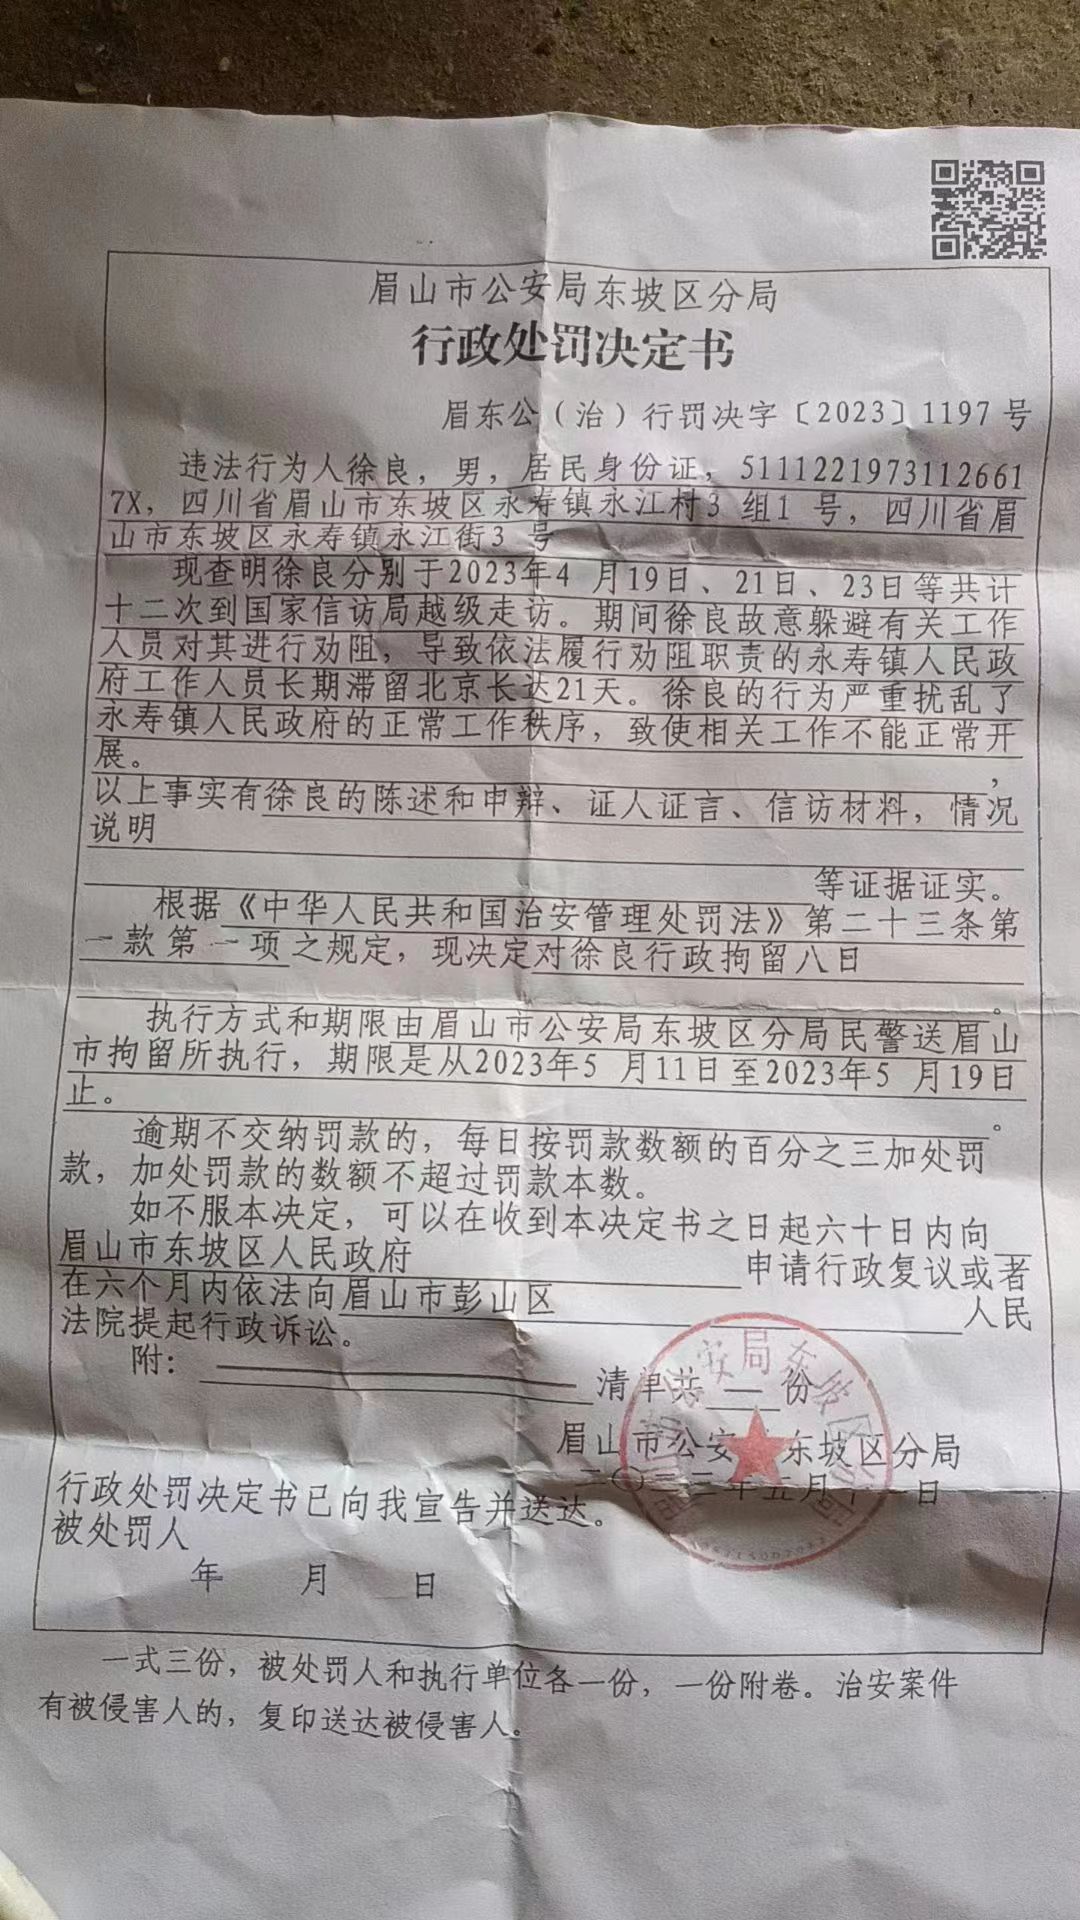 眉山市公安局东坡区分局
行政处罚决定书
眉东公（治）行罚决字〔2023〕1197 号
违法行为人徐良，男，居民身份证，5111221973112661
7X，四川省眉山市东坡区永寿镇永江村3 组1 号，四川省眉
山市东坡区永寿镇永江街3 号
现查明徐良分别于2023年4 月19日、21日、23日等共计
十二次到国家信访局越级走访。期间徐良故意躲避有关工作
人员对其进行劝阻，导致依法履行劝阻职责的永寿镇人民政
府工作人员长期滞留北京长达21天。徐良的行为严重扰乱了
永寿镇人民政府的正常工作秩序，致使相关工作不能正常开
展。，
以上事实有徐良的陈述和申辩、证人证言、信访材料，情况
说明
等证据证实。
根据《中华人民共和国治安管理处罚法》第二十三条第
一款第一项之规定，现决定对徐良行政拘留八日
。
执行方式和期限由眉山市公安局东坡区分局民警送眉山
市拘留所执行，期限是从2023年5 月11日至2023年5 月19日
止。
。
逾期不交纳罚款的，每日按罚款数额的百分之三加处罚
款，加处罚款的数额不超过罚款本数。
如不服本决定，可以在收到本决定书之日起六十日内向
眉山市东坡区人民政府 申请行政复议或者
在六个月内依法向眉山市彭山区 人民
法院提起行政诉讼。
附： 清单共 份
眉山市公安 东坡区分局
二〇二三年五月十一日
行政处罚决定书已向我宣告并送达。
被处罚人
年 月 日
一式三份，被处罚人和执行单位各一份，一份附卷。治安案件
有被侵害人的，复印送达被侵害人。